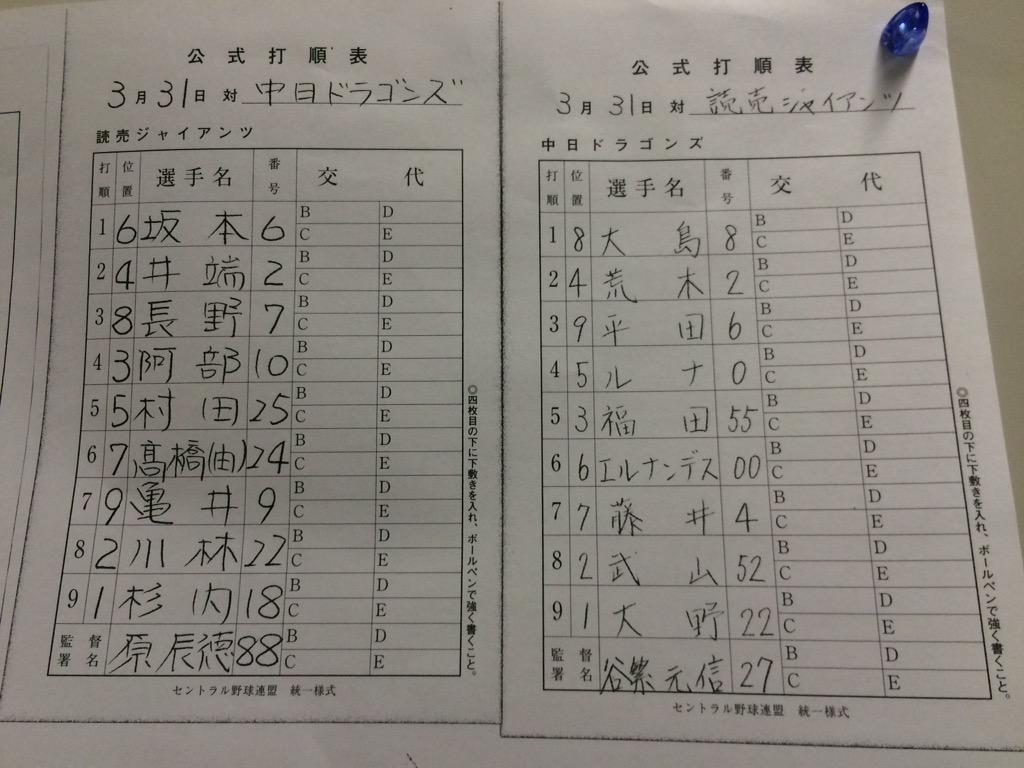 公式打順表
3月31日 対 中日ドラゴンズ
読売ジャイアンツ
打順 位置 選手名 番号 交代
1 6 坂本 6 B D C E
2 4 井端 2 B D C E
3 8 長野 7 B D C E
4 3 阿部 10 B D C E
5 5 村田 25 B D C E
6 7 髙橋(由) 24 B D C E
7 9 亀井 9 B D C E
8 2 小林 22 B D C E
9 1 杉内 18 B D C E
監督署名 原辰徳 88 B D C E
◎四枚目の下に下敷きを入れ、ボールペンで強く書くこと。
セントラル野球連盟 統一様式
公式打順表
3月31日 対 読売ジャイアンツ
中日ドラゴンズ
打順 位置 選手名 番号 交代
1 8 大島 8 B D C E
2 4 荒木 2 B D C E
3 9 平田 6 B D C E
4 5 ルナ 0 B D C E
5 3 福田 55 B D C E
6 6 エルナンデス 00 B D C E
7 7 藤井 4 B D C E
8 2 武山 52 B D C E
9 1 大野 22 B D C E
監督署名 谷繁元信 27 B D C E
◎四枚目の下に下敷きを入れ、ボールペンで強く書くこと。
セントラル野球連盟 統一様式